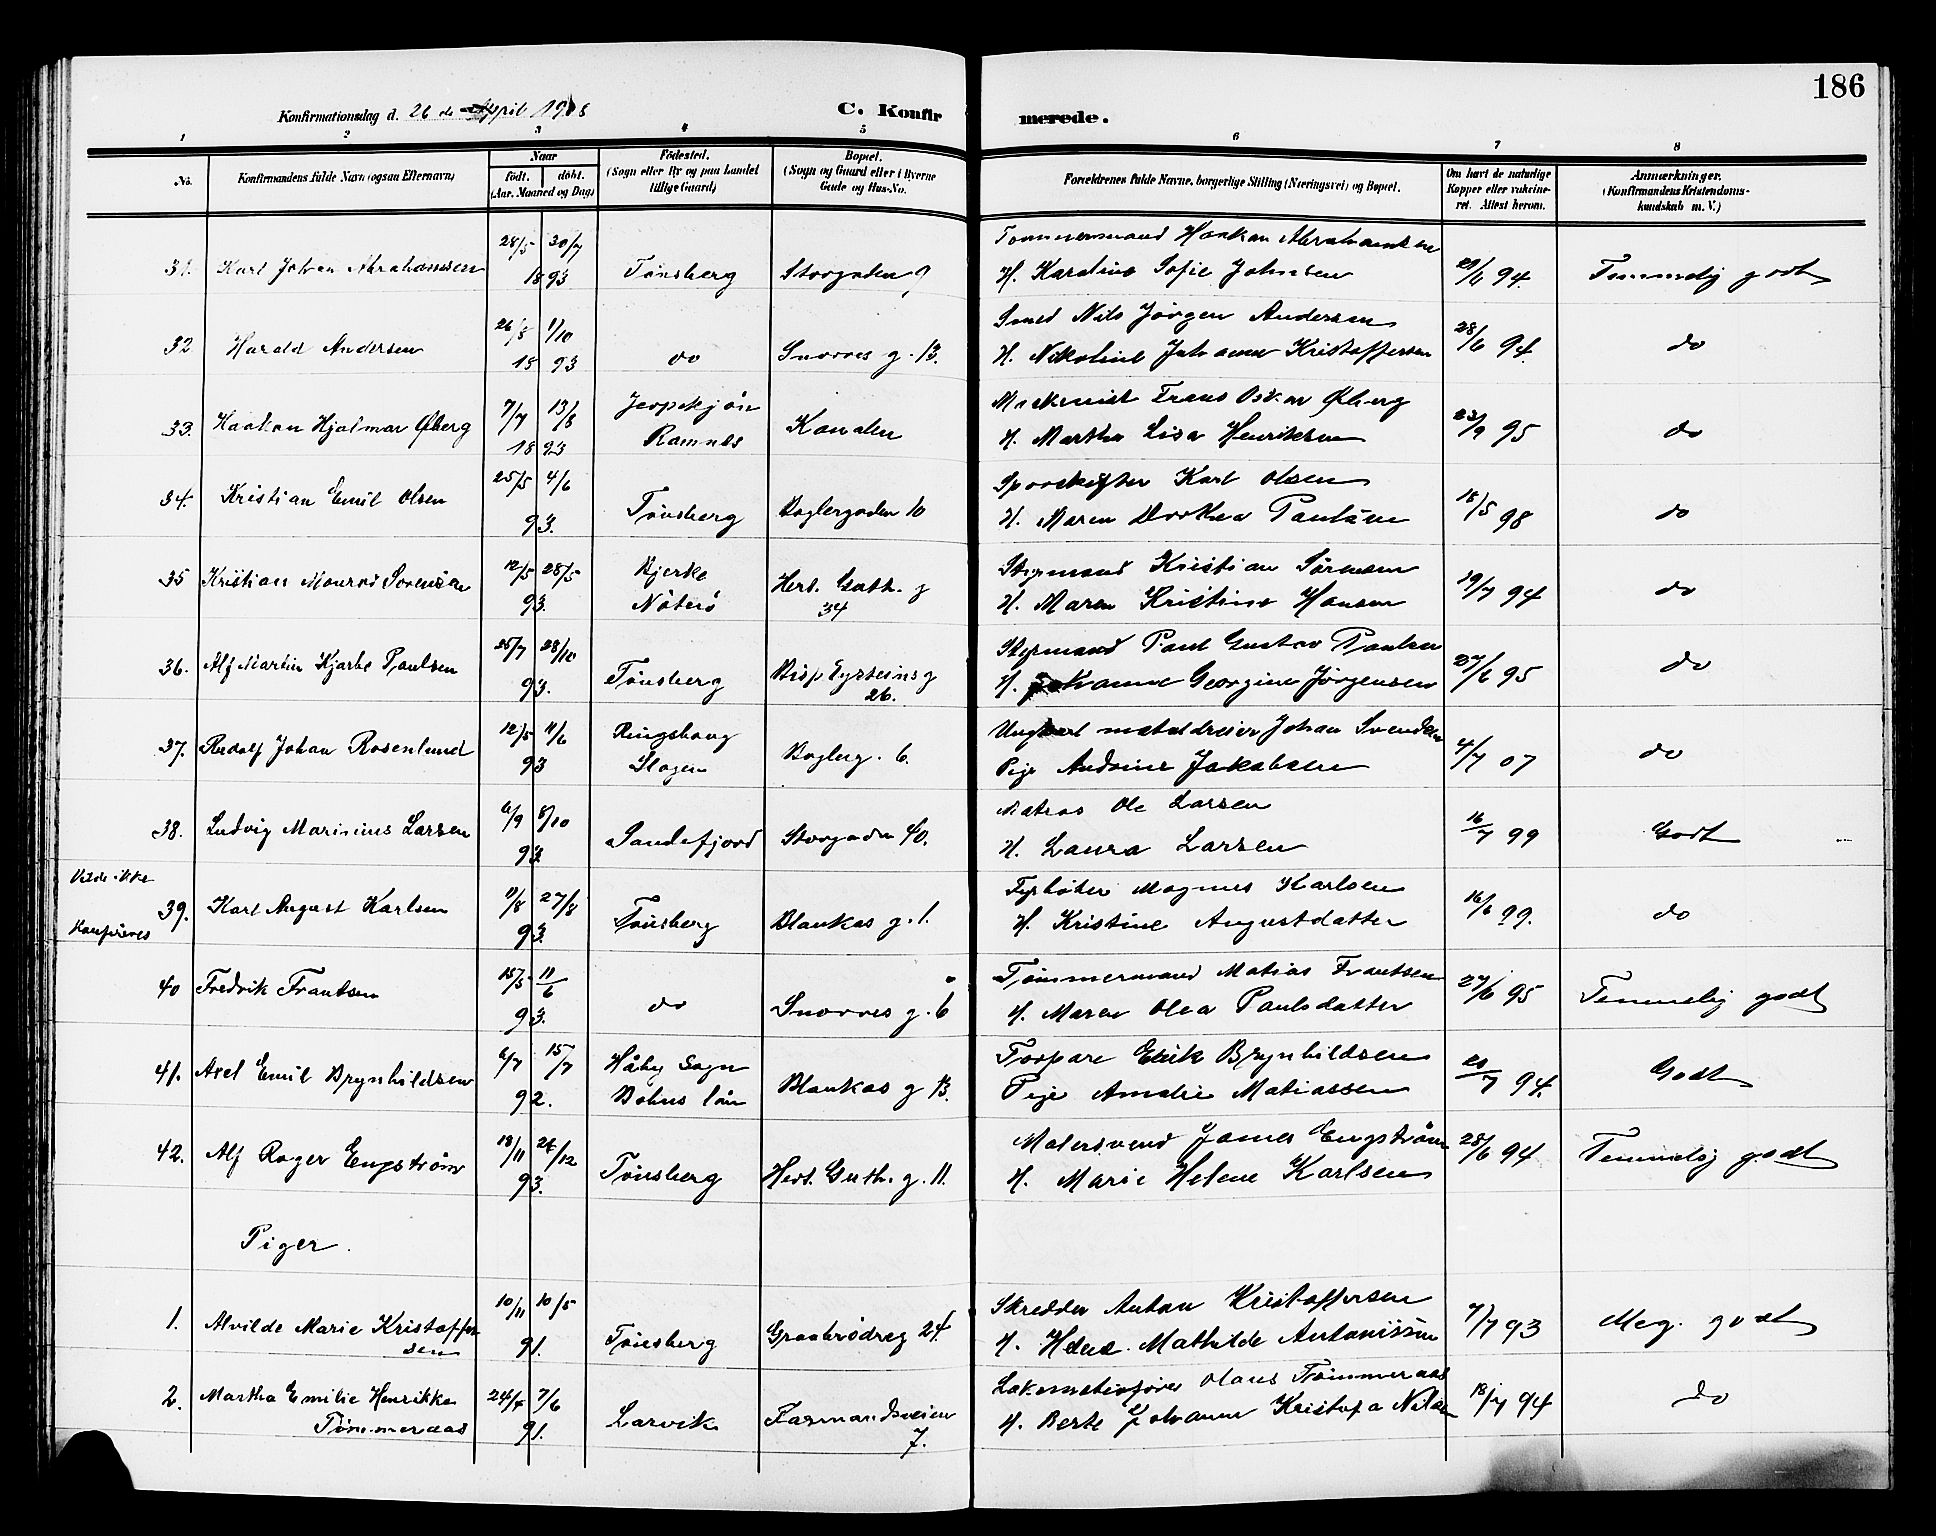 186
Konfirmationsdag d. 26 de April 1908
C. Konfirmerede.
1 2 3 4 5 6 7 8
No. Konfirmandens fulde Navn (ogsaa Efternavn) Naar født. døbt. (Aar, Maaned og Dag) Fødested. (Sogn eller By og paa Landet tillige Gaard) Bopæl. (Sogn og Gaard eller i Byerne Gade og Hus-No. Forældrenes fulde Navne, borgerlige Stilling (Næringsvei) og Bopæl. Om havt de naturlige Kopper eller vakcineret. Attest herom. Anmærkninger. (Konfirmandens Kristendomskundskab m. V.)
28/5 30/7 Tømmermand Haakan Abrahamsen
31. Karl Johan Abrahamsen 1893 Tønsberg Storgaden 9 H. Karoline Sofie Johnsen 94. Temmelig godt
26/8 1/10 Smed Nils Jørgen Andersen
32 Harald Andersen 1893 do Snorres g. 13. H. Nikoline Johanne Kristoffersen 28/6 94. do
7/7 13/8 Frans Oskar Øberg
33. Haakon Hjalmar Øberg 1893 Ramnes Kanalen H. Martha Lisa Henriksen 23/9 95 do
25/5 4/6 Karl Olsen
34. Kristian Emil Olsen 93. Tønsberg Baglergaden 10 H. Maren Dorthea Paulsen 18/5 98 do
12/5 28/5 Bjerke Styrmand Kristian Sørensen
35 Kristian Monrad Sørensen 93. Nøterø Hert. Guth. g 34 H. Maren Kristine Hansen 19/7 94 do
25/7 28/10 Styrmand Paul Gustav Paulsen
36. Alf Martin Kjarbe Paulsen 93. Tønsberg Bisp Eysteins g 26. H. Johanne Georgine Jørgensen 27/6 95 do
12/5 11/6 Ringshaug Ungkarl metaldreier Johan Svendsen
37. Rudolf Johan Rosenlund 93 Slagen Baglerg. 6. Pige Andrine Jakobsen 4/7 07 do
6/9 8/10 Matros Ole Larsen
38. Ludvig Marinius Larsen 93 Sandefjord Storgaden 40. H. Laura Larsen 16/7 99 Godt
Vilde ikke
konfirmeres
11/8 27/8 Fyrbøter Magnus Karlsen
39. Karl August Karlsen 93. Tønsberg Blankas g. 1. H. Kristine Augustdatter 16/6 99. do
15/5 11/6 Tømmermand Matias Frantsen
40 Fredrik Frantsen 93. do Snorres g. 6 H. Maren Olea Paulsdatter 27/6 95 Temmelig godt
6/7 15/7 Håby Sogn Torpare Erik Brynhildsen
41. Axel Emil Brynhildsen 92. Bohus län Blankas g 13. Pige Amalie Matiassen 94. Godt
18/11 26/12 Malersvend James Engstrøm
42. Alf Roger Engstrøm 93. Tønsberg Hert. Guth. g. 11. H. Marie Helene Karlsen 28/6 94 Temmelig godt
Piger.
10/11 10/5 Skredder Anton Kristoffersen
1. Alvilde Marie Kristoffersen 91. Tønsberg Graabrødreg 24. H. Helene Mathilde Antonissen 7/7 93 Meg. godt
24/4 7/6 Lokomotivfører Olaus Tømmeraas
2. Martha Emilie Henrikke Tømmeraas 91. Larvik Farmandsveien 7. H. Berte Johanne Kristofa Nilsen 18/7 94 do